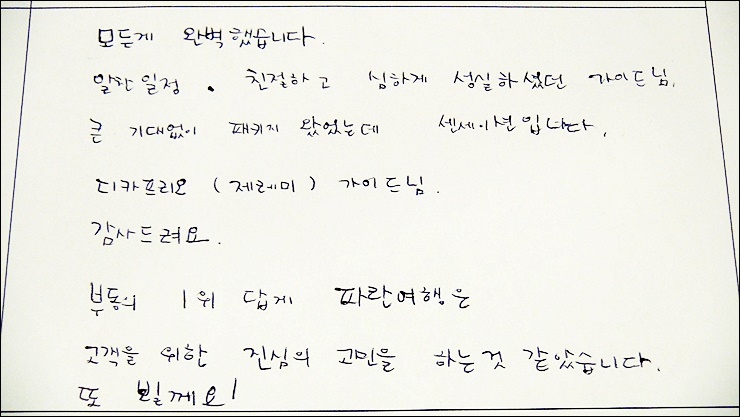 모든게 완벽했습니다.
알찬일정. 친절하고 심하게 성실하셨던 가이드님.
큰 기대없이 패키지 왔었는데 센세이션입니다.
디카프리오 (제레미) 가이드님.
감사드려요.
부동의 1위 답게 파란여행은
고객을 위한 진심의 고민을 하는것 같았습니다.
또 뵐께요!